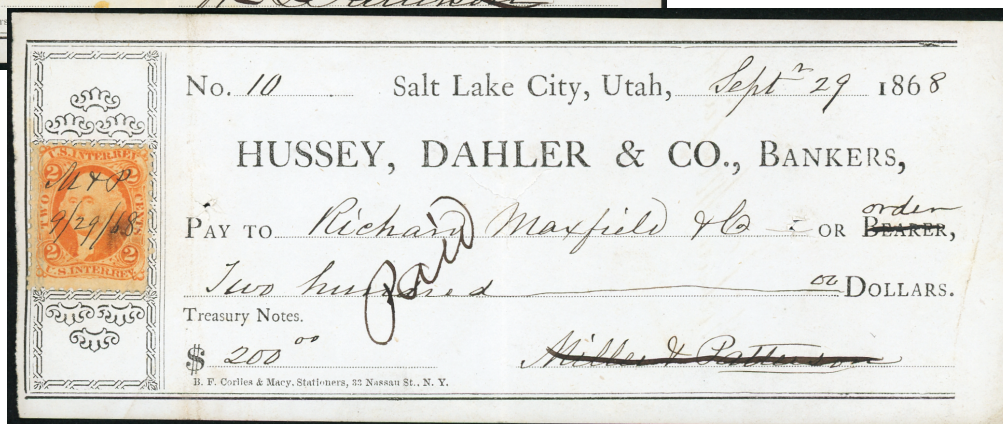 No. 10 Salt Lake City, Utah, Septr 29 1868
HUSSEY, DAHLER & CO., BANKERS,
order
PAY TO Richard Maxfield & Co OR BEARER,
Two hundred 00 DOLLARS.
Paid
Treasury Notes.
$ 200 00
Miller & Patterson
B. F. Corlies & Macy. Stationers, 33 Nassau St., N. Y.
U.S. INTER REV.
2 2
M & P
9/29/68
TWO CENTS
2 2
U.S INTER REV.